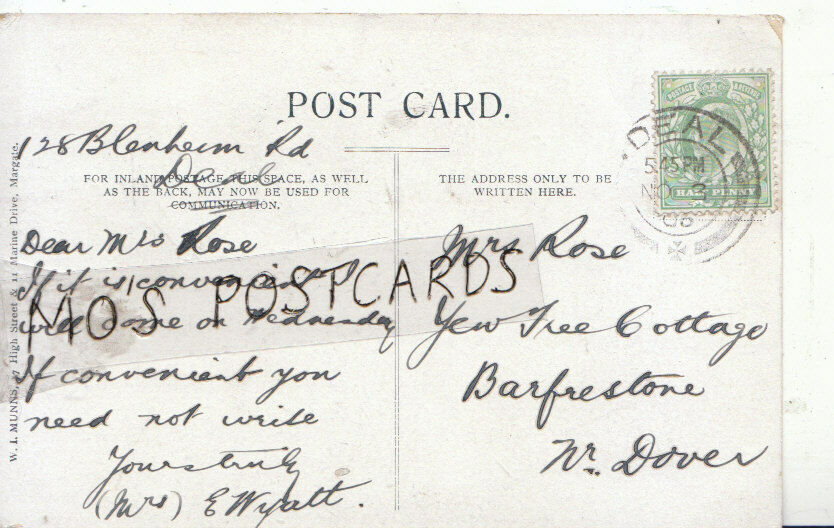 POST CARD.
128 Blenheim Rd
Deal
FOR INLAND POSTAGE THIS SPACE, AS WELL
AS THE BACK, MAY NOW BE USED FOR
COMMUNICATION.
Dear Mrs Rose
If it is convenient I
will come on Wednesday
If convenient you
need not write
Yours truly
(Mrs) E Wyatt.
THE ADDRESS ONLY TO BE
WRITTEN HERE.
Mrs Rose
Yew Tree Cottage
Barfrestone
Nr. Dover
POSTAGE REVENUE
HALF PENNY
DEAL
5 45 PM
NO 3
08
MOS POSTCARDS
W. J. MUNNS, High Street & 11 Marine Drive, Margate.